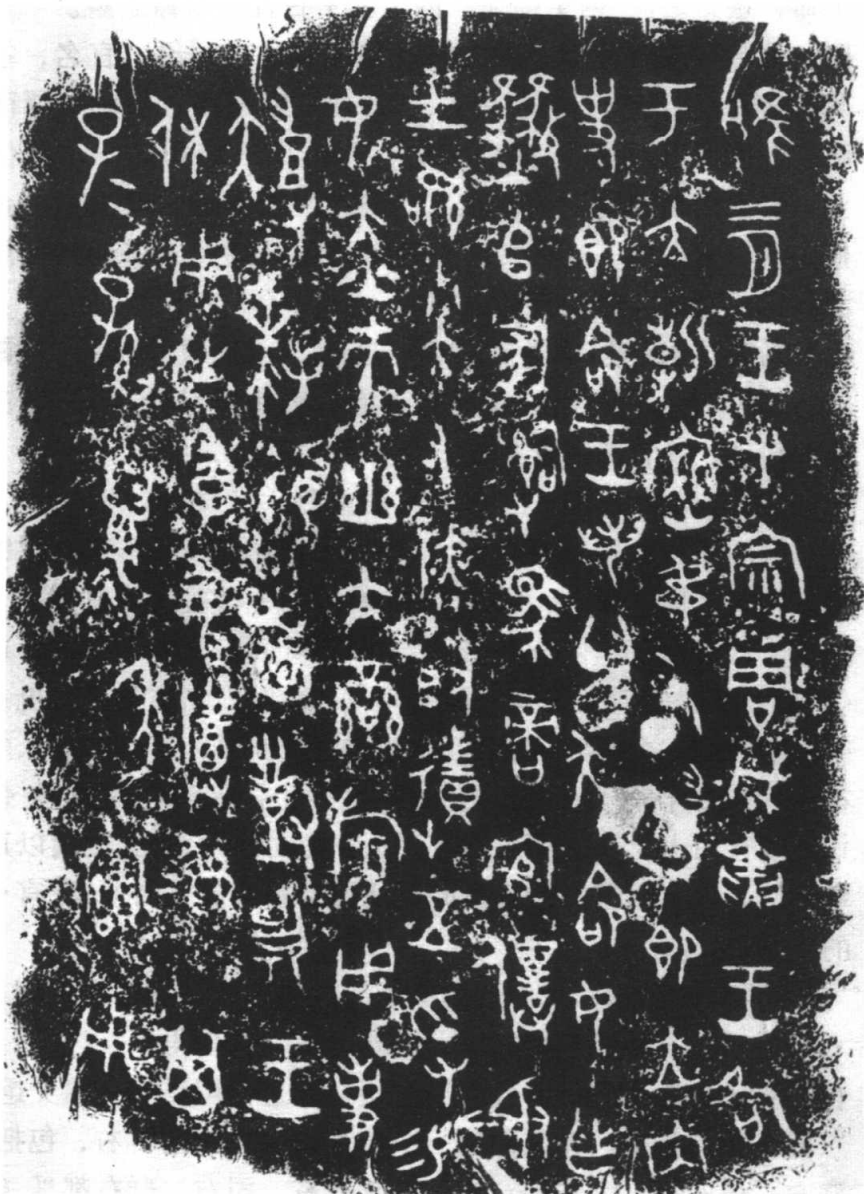 唯二月王才宗周戊寅王各
于大朝密叔右趞即立內
史即命王若曰趞命女乍
𤞷𠂤冢𤔲馬啻官僕射
士訊小大又鄰取徵五寽易
女赤巿幽亢䜌旂用事
趞拜𩒨首對揚王
休用乍季姜尊彝其
子=孫=萬年寶用